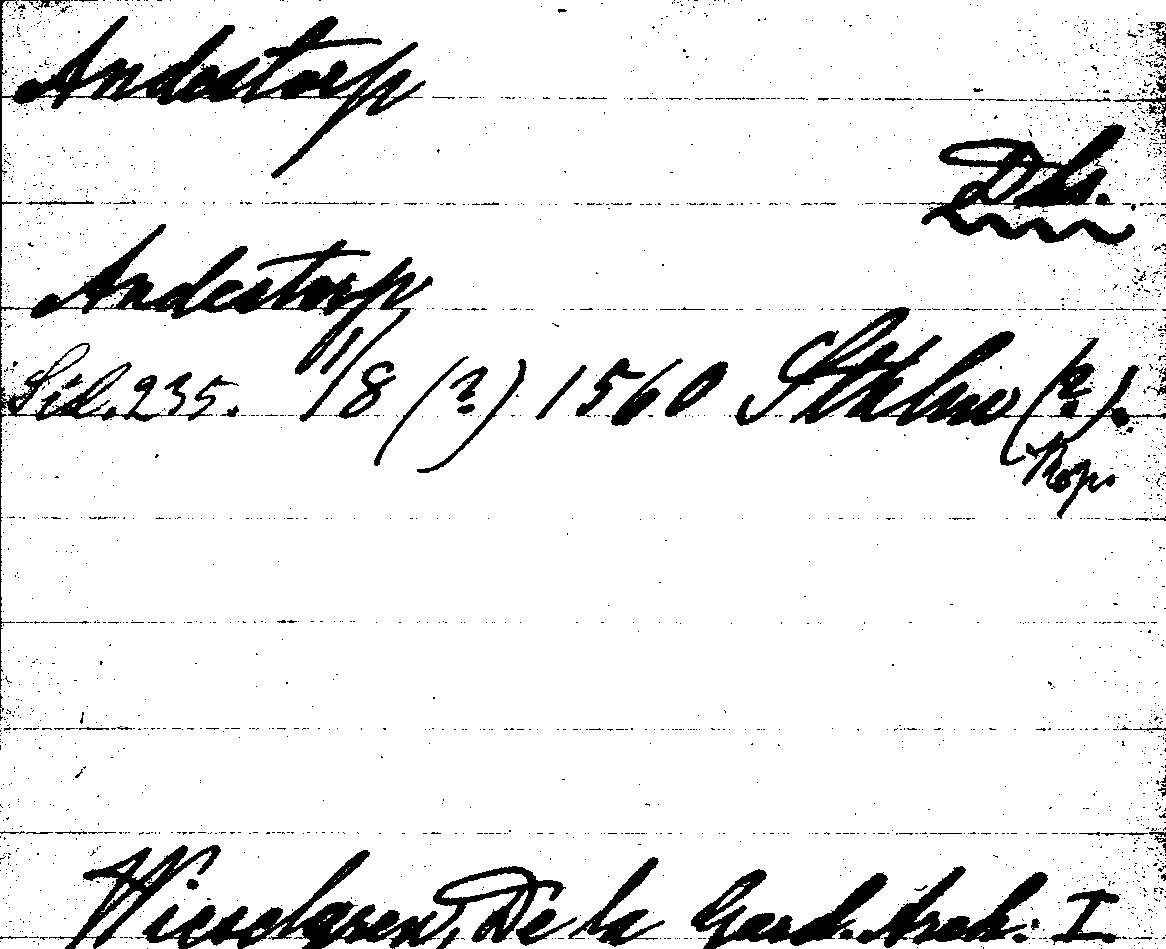 Anderstorp
Dls.
Anderstorp
Sid. 235. 11/8 (?) 1560 Sthlm (?).
Kop.
Wieselgren, De la Gard. Arch. I.